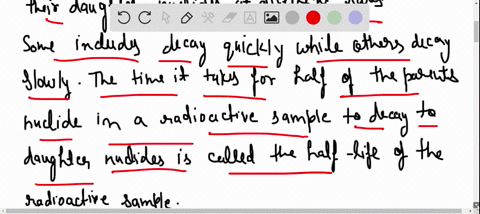 their daug
Some indudes decay quickly while others decay
slowly. The time it takes for half of the parents
nuclide in a radioactive sample to decay to
daughter nudides is called the half-life of the
radioactive sample.